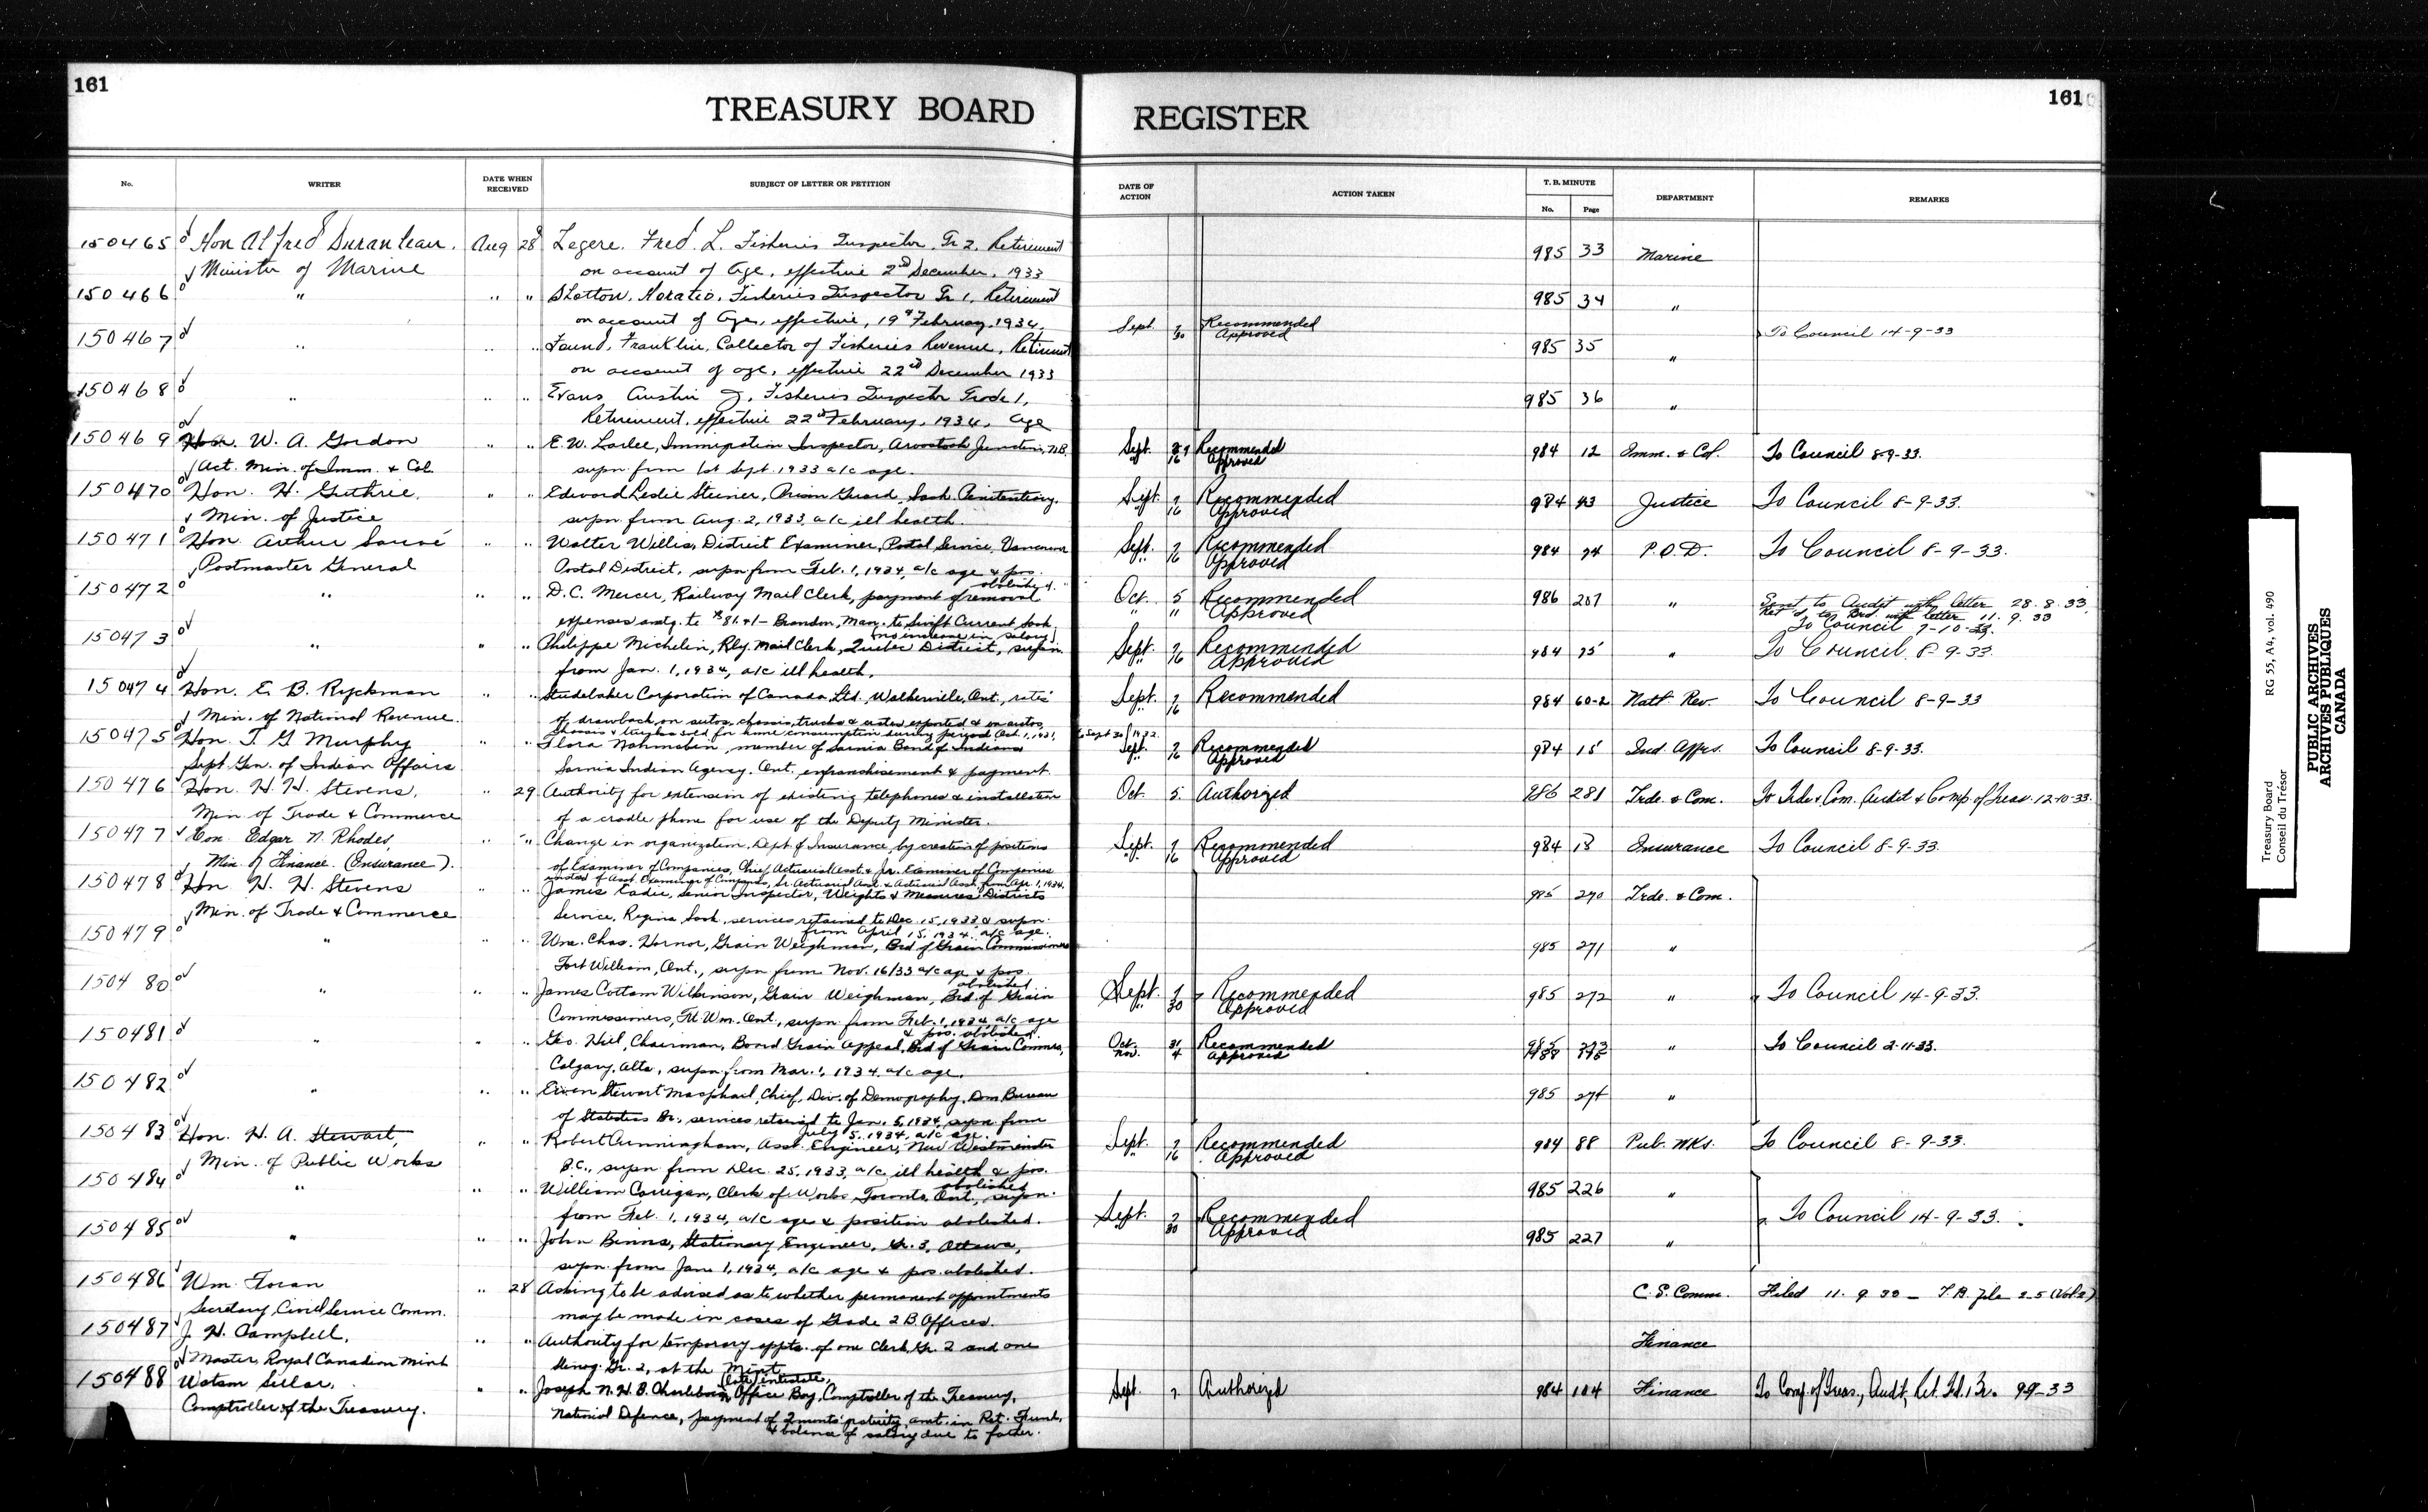 161
TREASURY BOARD REGISTER
161
No. WRITER DATE WHEN RECEIVED SUBJECT OF LETTER OR PETITION DATE OF ACTION ACTION TAKEN T. B. MINUTE No. Page DEPARTMENT REMARKS
150465 Hon Alfred Duranleau. Aug 28 Legere. Fred. L. Fisheries Inspector. Gr 2. Retirement 985 33 Marine
Minister of Marine on account of Age, effective 2nd December, 1933
150466 " " " Shotton, Horatio, Fisheries Inspector Gr 1, Retirement 985 34 "
on account of Age, effective, 19th February, 1934. Sept. 7 Recommended To Council 14-9-33
30 Approved
150467 " " " Found, Franklin, Collector of Fisheries Revenue, Retirement 985 35 "
on account of age, effective 22nd December 1933
150468 " " " Evans Austin J. Fisheries Inspector Grade 1, 985 36 "
Retirement, effective 22nd February, 1934, Age
150469 Hon. W. A. Gordon " " E. W. Larlee, Immigration Inspector, Aroostook Junction, N.B. Sept. 7 Recommended 984 12 Imm. & Col. To Council 8-9-33.
Act. Min. of Imm. & Col. supn. from 1st Sept. 1933 a/c age. " 16 Approved
150470 Hon. H. Guthrie, " " Edward Leslie Steiner, Prison Guard, Sask. Penitentiary. Sept. 7 Recommended 984 43 Justice To Council 8-9-33.
Min. of Justice supn. from Aug. 2, 1933, a/c ill health. " 16 Approved
150471 Hon. Arthur Sauvé " " Walter Willis, District Examiner, Postal Service, Vancouver Sept. 7 Recommended 984 74 P.O.D. To Council 8-9-33.
Postmaster General Postal District, supn. from Feb. 1, 1934, a/c age & pos. abolished. " 16 Approved
150472 " " " D. C. Mercer, Railway Mail Clerk, payment of removal Oct. 5 Recommended 986 207 " Sent to Audit with letter 28.8.33
expenses amtg. to $81.41 - Brandon, Man. to Swift Current Sask. " " Approved Ret'd to Brd with letter 11.9.33
(no increase in salary) To Council 7-10-33.
150473 " " " Philippe Michelin, Rly. Mail Clerk, Quebec District, supn. Sept. 7 Recommended 984 75 " To Council 8-9-33.
from Jan. 1, 1934, a/c ill health. " 16 Approved
150474 Hon. E. B. Ryckman " " Studebaker Corporation of Canada, Ltd., Walkerville, Ont., rates Sept. 7 Recommended 984 60-2 Natl. Rev. To Council 8-9-33
Min. of National Revenue. of drawback on autos, chassis, trucks & exported & on autos, " 16
chassis & trucks sold for home consumption during period Oct. 1, 1931, to Sept 30/1932
150475 Hon. T. G. Murphy " " Flora Nahmabin, member of Sarnia Band of Indians Sept. 7 Recommended 984 15 Ind. Affrs. To Council 8-9-33.
Supt. Gen. of Indian Affairs Sarnia Indian Agency. Ont. enfranchisement & payment. 16 Approved
150476 Hon. H. H. Stevens. " 29 Authority for extension of existing telephones & installation Oct. 5. Authorized 986 281 Trde. & Com. To Trde & Com. Audit & Comp. of Treas. 12-10-33.
Min. of Trade & Commerce of a cradle phone for use of the Deputy Minister.
150477 Hon. Edgar N. Rhodes, " " Change in organization, Dept. of Insurance, by creation of positions Sept. 7 Recommended 984 18 Insurance To Council 8-9-33.
Min. of Finance. (Insurance). of Examiner of Companies, Chief Actuarial Asst. & Jr. Examiner of Companies " 16 Approved
instead of Asst. Examiner of Companies, Sr. Actuarial Asst. & Actuarial Asst. from Apr. 1, 1934.
150478 Hon. H. H. Stevens " " James Eadie, Senior Inspector, Weights & Measures Districts 985 270 Trde. & Com.
Min. of Trade & Commerce Service, Regina Sask., services retained to Dec. 15, 1933 & supn. from April 15, 1934 a/c age.
150479 " " " Wm. Chas. Hornor, Grain Weighman, Brd. of Grain Commissioners 985 271 "
Fort William, Ont., supn from Nov. 16/33 a/c age & pos. abolished
150480 " " " James Cottam Wilkinson, Grain Weighman, Brd. of Grain Sept. 7 Recommended 985 272 " To Council 14-9-33.
Commissioners, Ft. Wm. Ont., supn. from Feb. 1, 1934 a/c age & pos. abolished. " 30 Approved
150481 " " " Geo. Hill, Chairman, Board Grain Appeal, Brd of Grain Commrs, Oct. 31 Recommended 985 273 " To Council 2-11-33.
Calgary, Alta., supn. from Mar. 1, 1934 a/c age. Nov. 4 Approved
150482 " " " Ewen Stewart Macphail, Chief, Div. of Demography, Dom. Bureau 985 274 "
of Statistics Br., services retained to Jan. 5, 1934, supn from July 5, 1934, a/c age.
150483 Hon. H. A. Stewart, " " Robert Cunningham, Asst. Engineer, New Westminster Sept. 7 Recommended 984 88 Pub. Wks. To Council 8-9-33.
Min. of Public Works B.C., supn from Dec. 25, 1933, a/c ill health & pos. abolished " 16 Approved
150484 " " " William Corrigan, Clerk of Works, Toronto, Ont., supn. 985 226 "
from Feb. 1, 1934, a/c age & position abolished. Sept. 7 Recommended To Council 14-9-33.
" 30 Approved
150485 " " " John Binns, Stationary Engineer, Gr. 3, Ottawa, 985 227 "
supn. from Jan 1, 1934, a/c age & pos. abolished.
150486 Wm. Foran " 28 Asking to be advised as to whether permanent appointments C. S. Comm. Filed 11.9.33 - T.B. file 25 (Vol 2)
Secretary, Civil Service Comm. may be made in cases of Grade 2 B. Offices.
150487 J. H. Campbell, " " Authority for temporary appts. of one Clerk, Gr. 2 and one Finance
Master, Royal Canadian Mint Stenog. Gr. 2, at the Mint
150488 Watson Sellar, " " Joseph N. H. B. Charlebois, (late) intestate, Office Boy, Comptroller of the Treasury, Sept. 7. Authorized 984 104 Finance To Comp. of Treas., Audit, Ret. Fd. Br. 9-9-33
Comptroller of the Treasury. National Defence, payment of 2 months' gratuity, amt. in Ret. Fund,
& balance of salary due to father.
Treasury Board RG 55, A4, vol. 490
Conseil du Trésor
PUBLIC ARCHIVES
ARCHIVES PUBLIQUES
CANADA